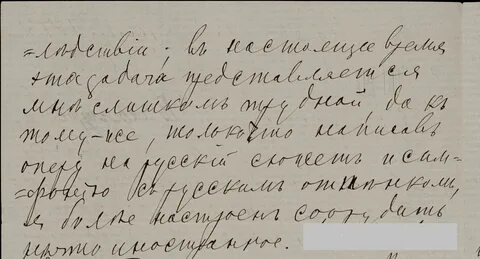 =лѣдствіи; въ настоящее время
эта задача представляется
мнѣ слишкомъ трудной, да къ
тому-же, только что написавъ
оперу на русскій сюжетъ и сим-
=фонію съ русскимъ оттѣнкомъ,
я болѣе настроенъ создать
нѣчто иностранное.